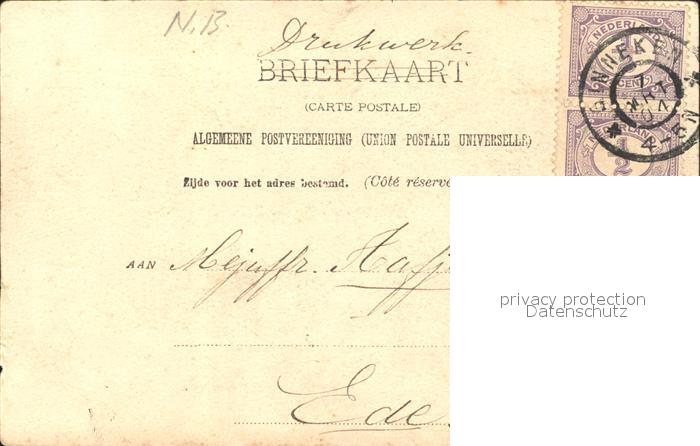 N.B.
Drukwerk.
BRIEFKAART
(CARTE POSTALE)
ALGEMEENE POSTVEREENIGING (UNION POSTALE UNIVERSELLE)
Zijde voor het adres bestemd. (Côté réservé
AAN Mejuffr.
Ede.
NEDERLAN
CENT
GINNEKEN
4-5N
1/2
privacy protection
Datenschutz